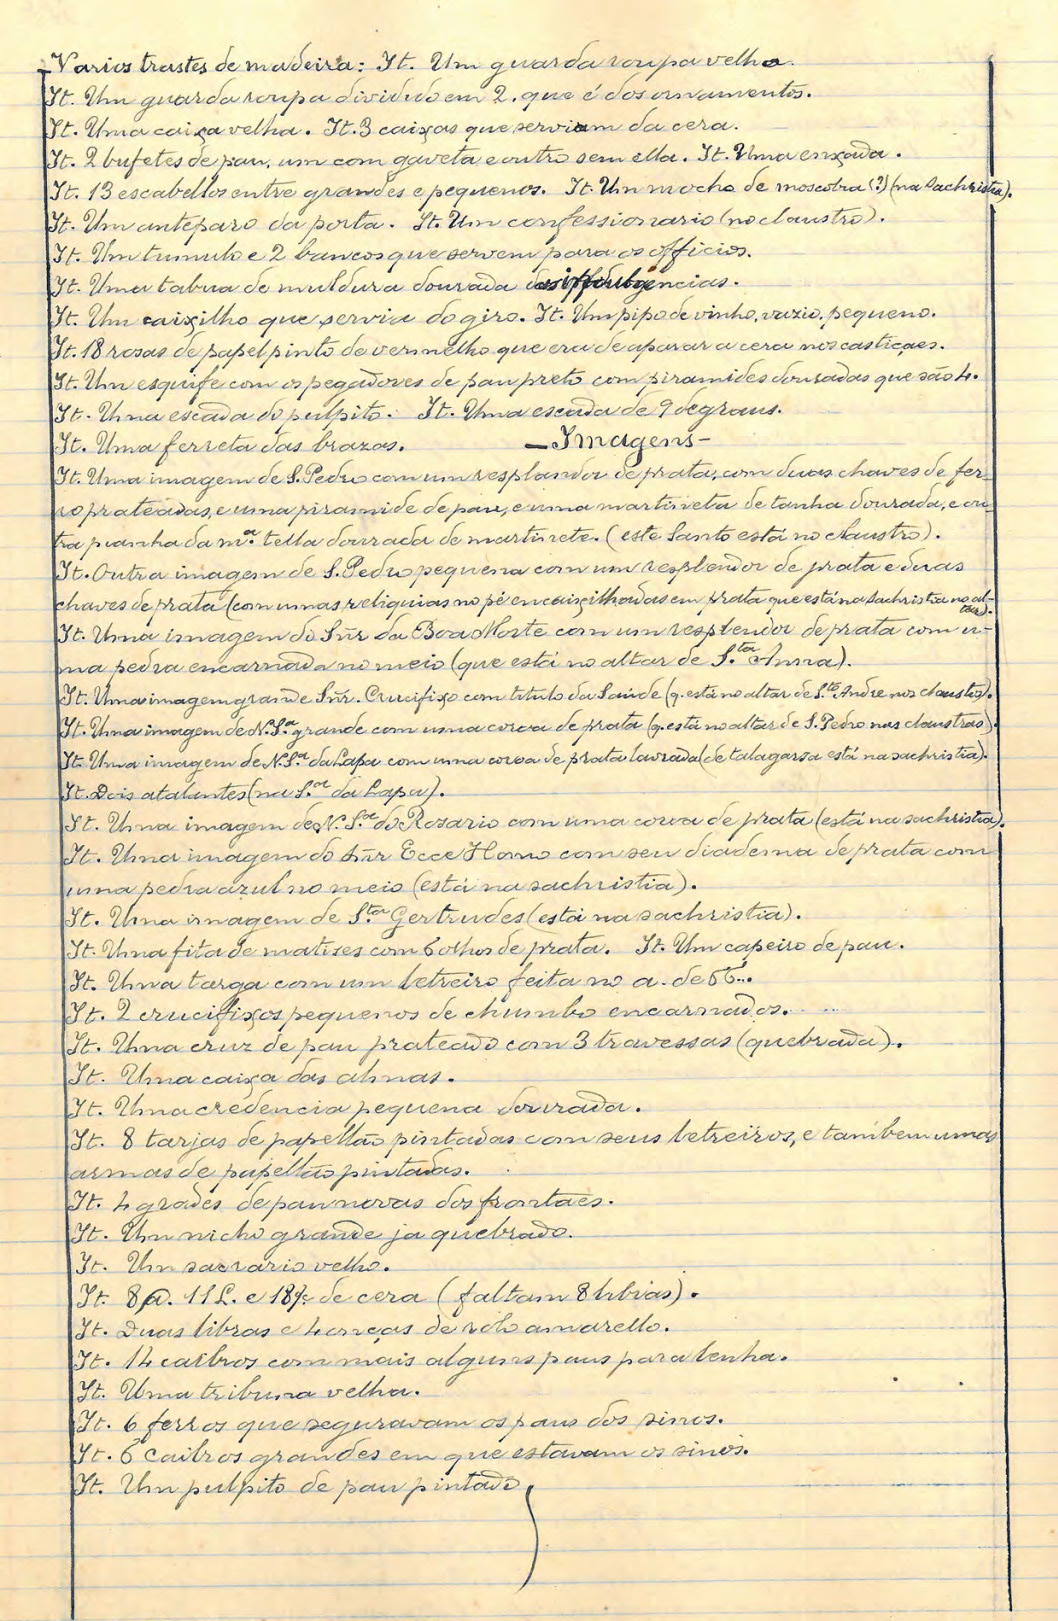 Varios trastes de madeira: It. Um guarda roupa velho.
It. Um guarda roupa dividido em 2. que é dos ornamentos.
It. Uma caixa velha. It. 3 caixas que serviam da cera.
It. 2 bufetes de pau, um com gaveta e outro sem ella. It. Uma enxada.
It. 13 escabellos entre grandes e pequenos. It. Um mocho de moscobra (?) (na Sachristia).
It. Um anteparo da porta. It. Um confessionario (no claustro).
It. Um tumulo e 2 bancos que servem para os officios.
It. Uma tabua de muldura dourada das indulgencias.
It. Um caixilho que servia do giro. It. Um pipo de vinho, vazio, pequeno.
It. 18 rosas de papel pinto de vermelho que era de aparar a cera nos castiçaes.
It. Um esquife com os pegadores de pau preto com piramides douradas que são 4.
It. Uma escada do pulpito. It. Uma escada de 9 degraus.
It. Uma ferreta das brazas. — Imagens —
It. Uma imagem de S. Pedro com um resplandor de prata, com duas chaves de fer-
ro prateadas, e uma piramide de pau, e uma martineta de tanha dourada, e ou-
tra pianha da m.ª tella dourada de martinete. (este Santo está no claustro).
It. Outra imagem de S. Pedro pequena com um resplendor de prata e duas
chaves de prata (com umas reliquias no pé encaixilhadas em prata que está na Sachristia no al-
tar).
It. Uma imagem do Snr da Boa Morte com um resplendor de prata com u-
ma pedra encarnada no meio (que está no altar de S.ta Anna).
It. Uma imagem grande Snr. Crucifixo com titulo da Saude (q. está no altar de S.to Andre nos claustros).
It. Uma imagem de N. S.ª grande com uma coroa de prata (q. está no altar de S. Pedro nos claustros).
It. Uma imagem de N. S.ª da Lapa com uma coroa de prata lavrada (de talagarsa está na sachristia).
It. Dois atalantes (na S.ra da Lapa).
It. Uma imagem de N. S.ª do Rosario com uma coroa de prata (está na sachristia).
It. Uma imagem do Snr Ecce Homo com seu diadema de prata com
uma pedra azul no meio (está na sachristia).
It. Uma imagem de S.ta Gertrudes (está na sachristia).
It. Uma fita de matises com 6 olhos de prata. It. Um capeiro de pau.
It. Uma targa com um letreiro feita no a. de 66...
It. 2 crucifixos pequenos de chumbo encarnados.
It. Uma cruz de pau prateado com 3 travessas (quebrada).
It. Uma caixa das almas.
It. Uma credencia pequena dourada.
It. 8 tarjas de papellão pintadas com seus letreiros, e tambem umas
armas de papellão pintadas.
It. 4 grades de pau novas dos frontaes.
It. Um nicho grande ja quebrado.
It. Um sacrario velho.
It. 8 @. 11 L. e 18 de cera (faltam 8 libras).
It. Duas libras e 4 onças de rolo amarello.
It. 14 caibros com mais alguns paus para lenha.
It. Uma tribuna velha.
It. 6 ferros que seguravam os paus dos sinos.
It. 6 Caibros grandes em que estavam os sinos.
It. Um pulpito de pau pintado